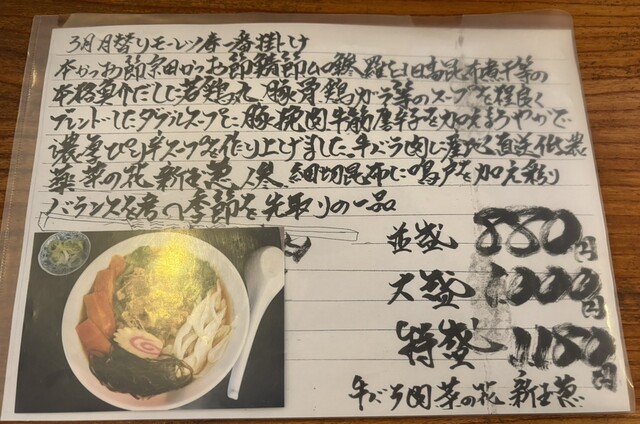 3月月替りモーレツ春一番掛け
本かつお節宗田かつお節鯖節ムロ鯵羅臼日高昆布煮干等の
本格魚介だしに若鶏丸豚骨鶏ガラ等のスープを程良く
ブレンドしたダブルスープに豚挽肉牛筋唐辛子を加えまろやかで
濃厚ぴり辛スープを作り上げました。牛バラ肉に
菜の花新玉葱人参細切昆布に鳴戸を加え彩り
バランスを考へ季節を先取りの一品
並盛 880円
大盛 1000円
特盛 1180円
牛バラ肉菜の花新玉葱